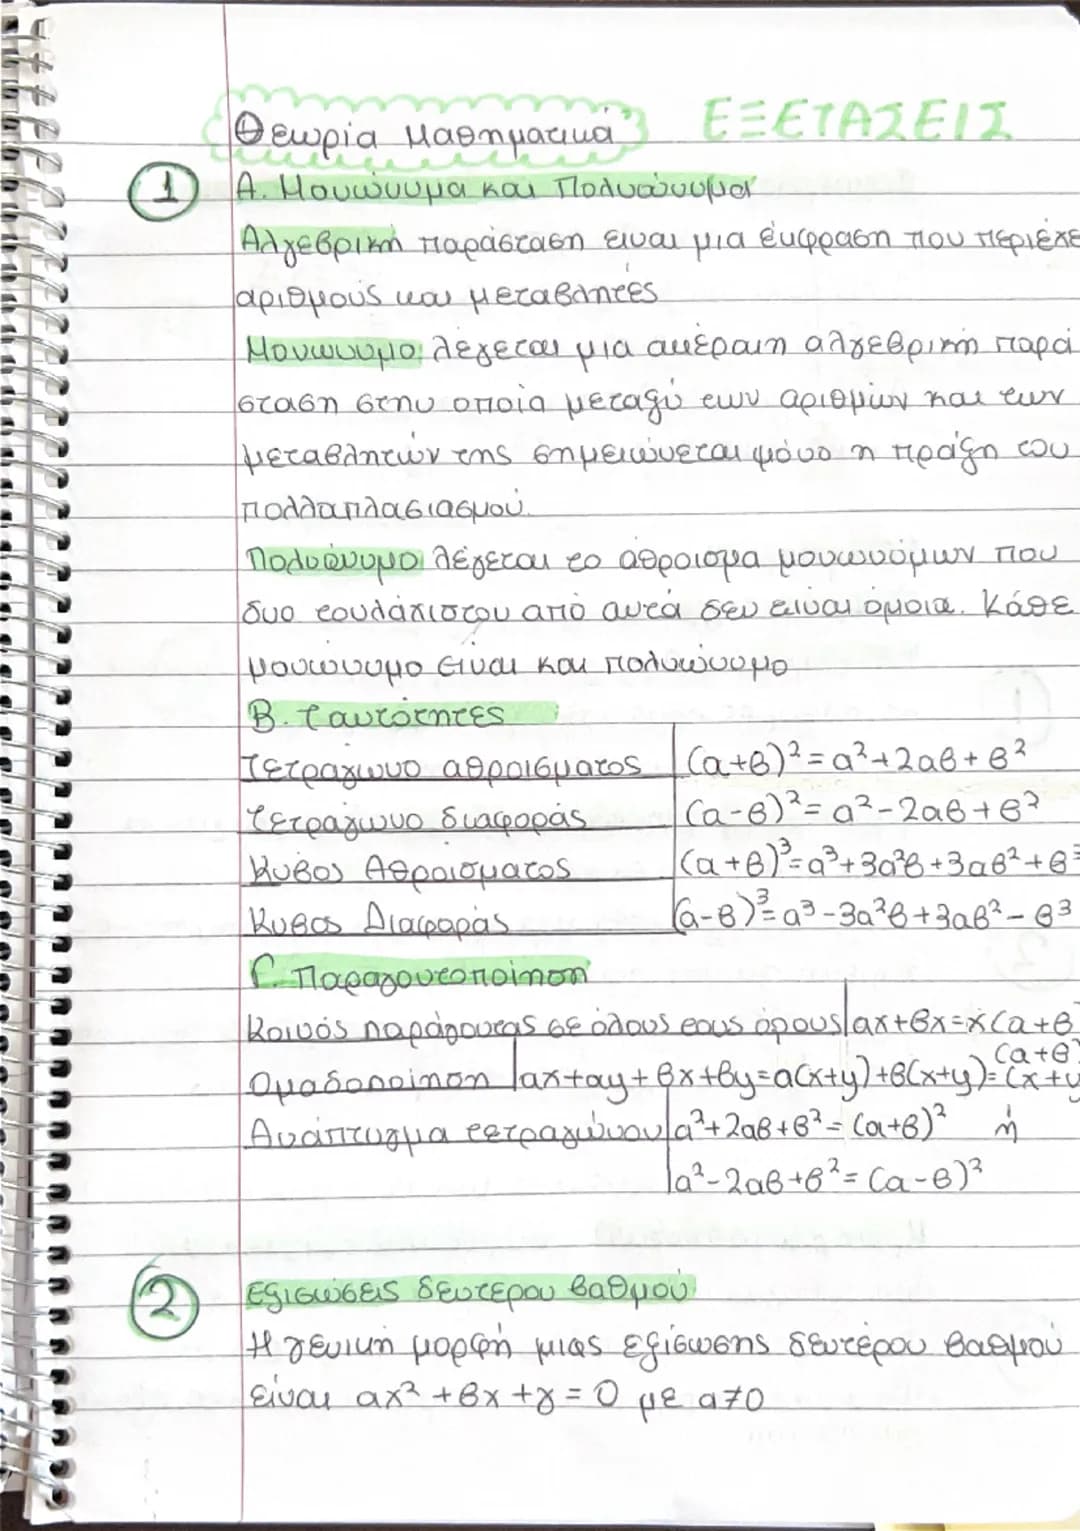 Θεωρία Μαθηματικά ΕΞΕΤΑΣΕΙΣ
1 Α. Μονώνυμα και Πολυώνυμα
Αλγεβρική παράσταση ειναι μια έκφραση που περιέχε
αριθμούς και μεταβλητές
Μονωνυμο λέγεται μια ακέραιη αλγεβρική παρά
σταση στην οποία μεταξύ των αριθμών και των
μεταβλητών της σημειώνεται μόνο η πράξη του
πολλαπλασιασμού.
Πολυώνυμο λέγεται το αθροισμα μονωνύμων που
δυο τουλάχιστον από αυτά δεν είναι όμοια. Κάθε
μονώνυμο είναι και πολυώνυμο
Β. Ταυτότητες
Τετράγωνο αθροίσματος (α+β)²=α²+2αβ+β²
Τετράγωνο διαφοράς (α-β)²= α²-2αβ+β²
Κύβος Αθροίσματος (α+β)³=α³+3α²β+3αβ²+β³
Κυβος Διαφοράς (α-β)³=α³-3α²β+3αβ²-β³
Γ. Παραγοντοποίηση
Κοινός παράγοντας σε όλους τους όρους αx+βx=x(α+β
Ομαδοποίηση αx+αy+βx+βy=α(x+y)+β(x+y)=(α+β)(x+y
Ανάπτυγμα τετραγώνου α²+2αβ+β²=(α+β)² ή
α²-2αβ+β²=(α-β)²
2 Εξισώσεις δευτερου βαθμού
Η γενική μορφή μιας εξίσωσης δευτέρου βαθμού
είναι αx²+βx+γ=0 με α≠0